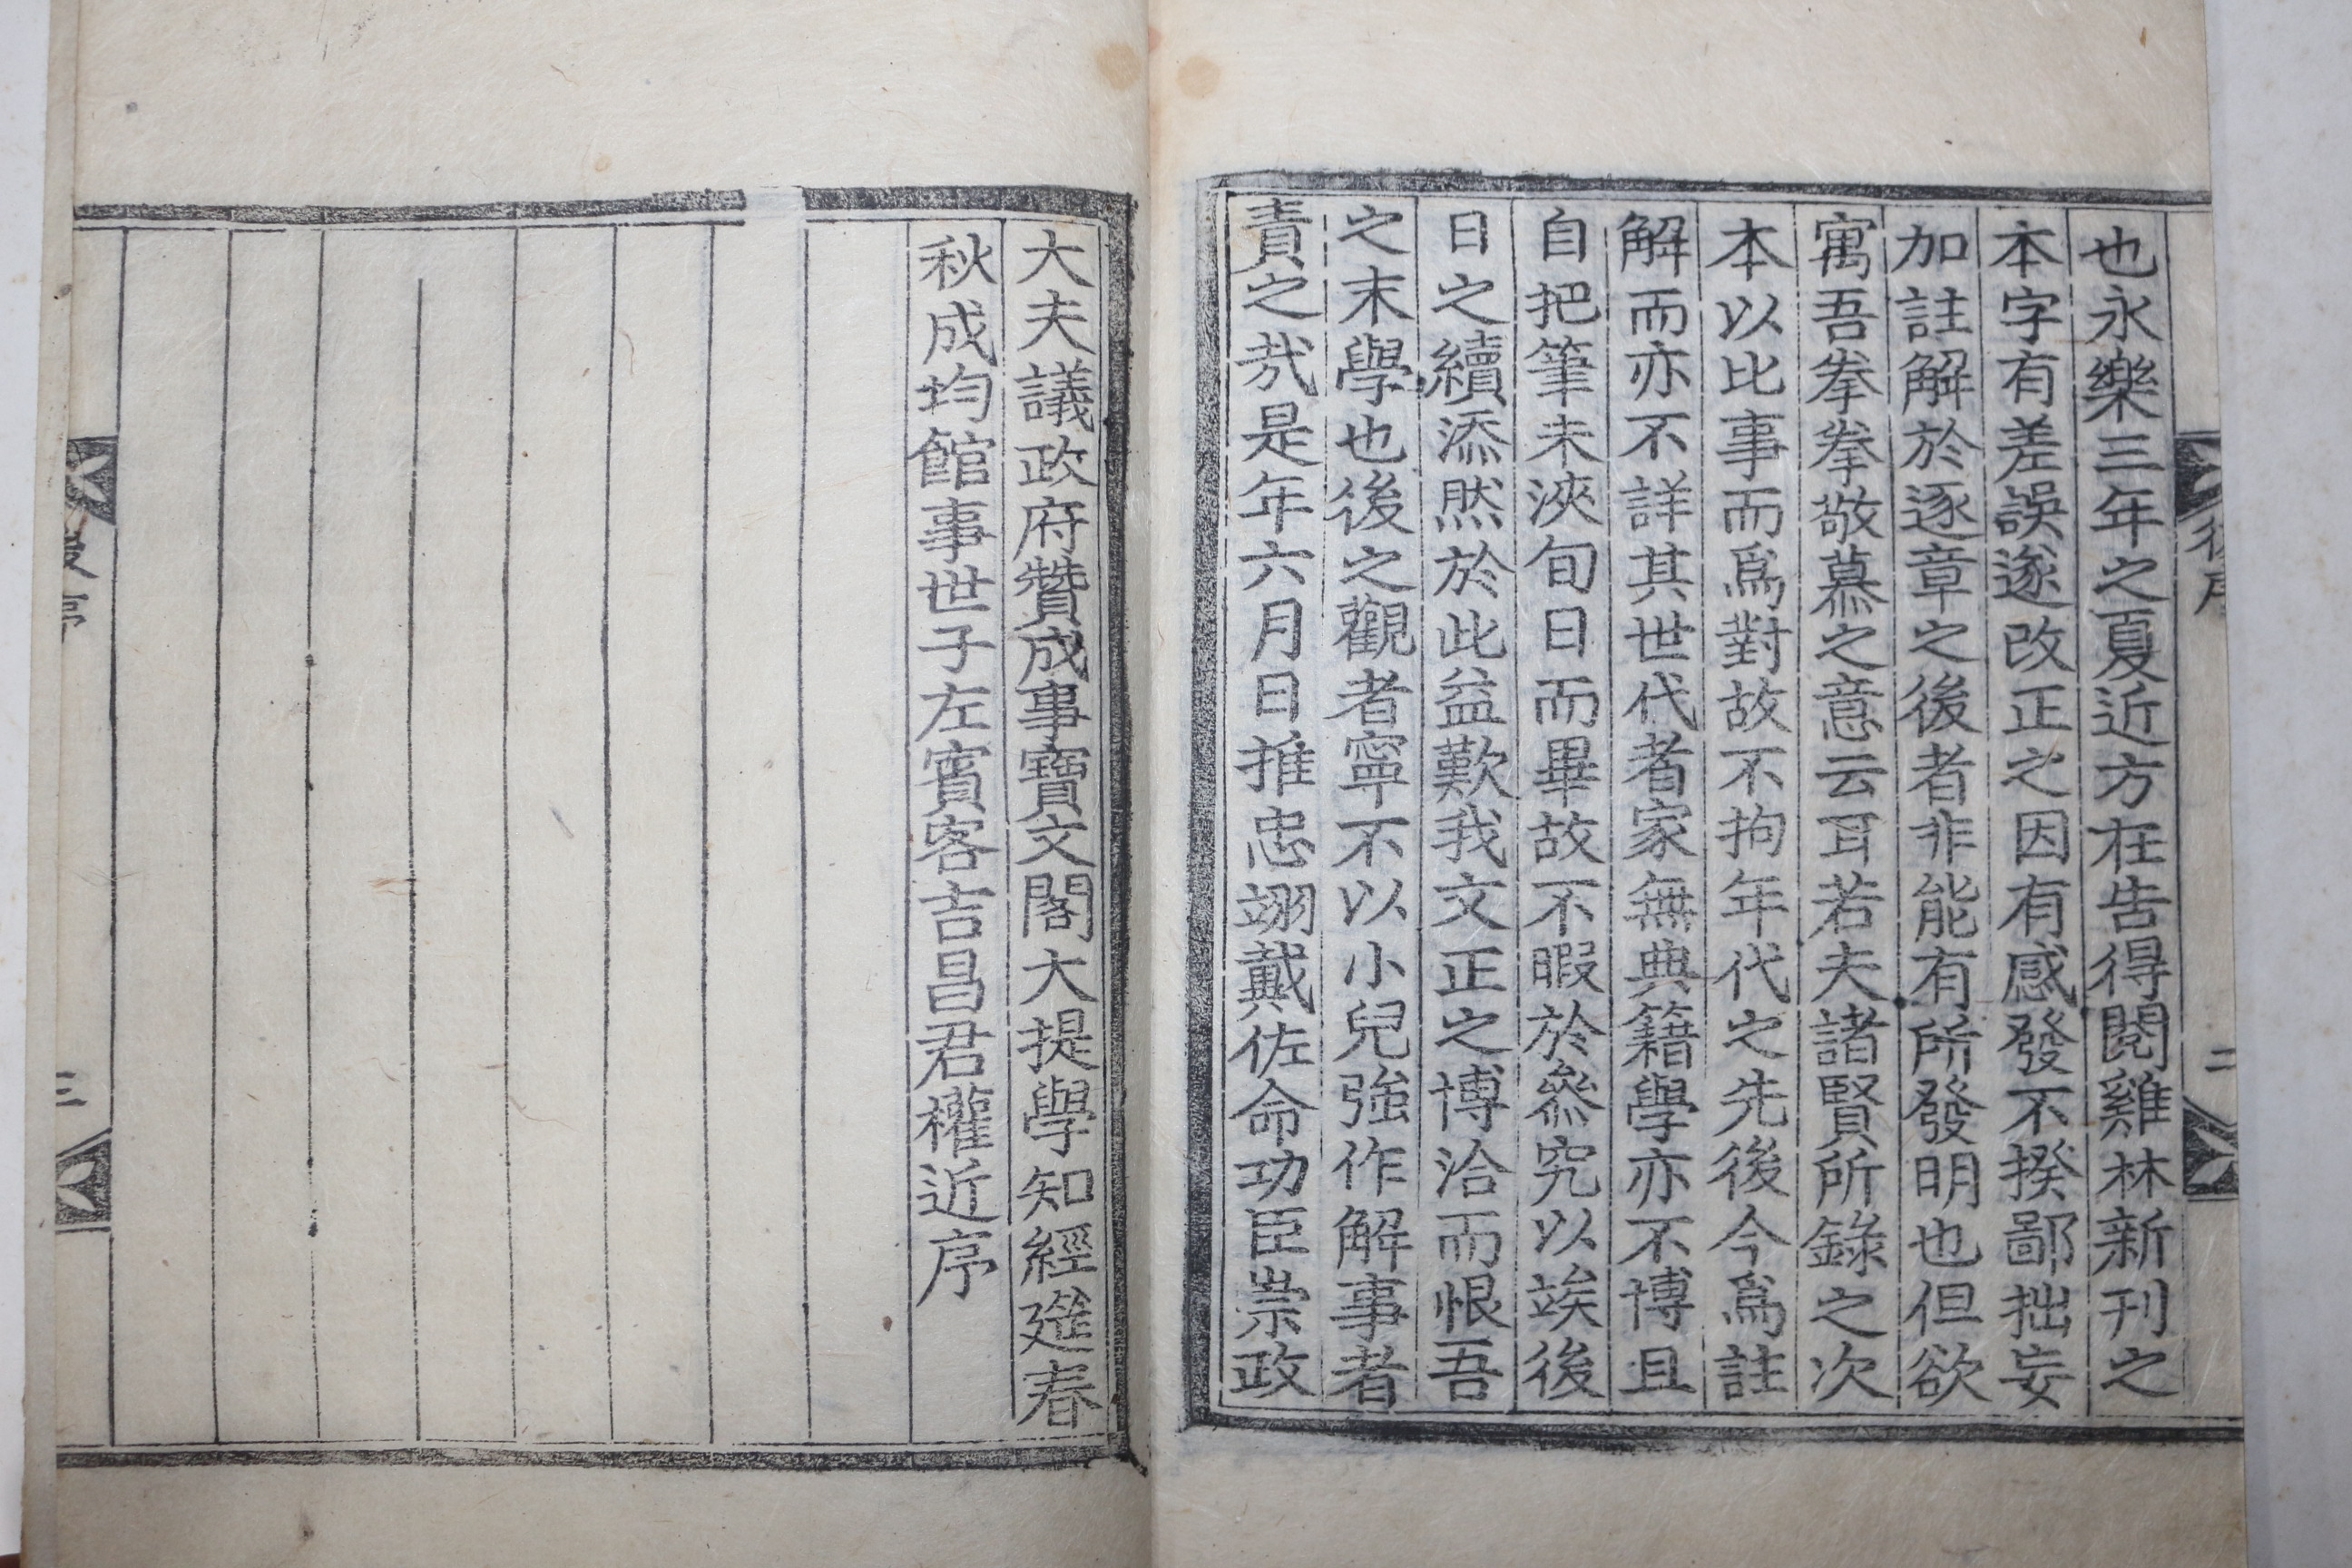 也永樂三年之夏近方在告得閱雞林新刊之
本字有差誤遂改正之因有感發不揆鄙拙妄
加註解於逐章之後者非能有所發明也但欲
寓吾拳拳敬慕之意云耳若夫諸賢所錄之次
本以比事而爲對故不拘年代之先後今爲註
解而亦不詳其世代者家無典籍學亦不博且
自把筆未浹旬日而畢故不暇於叅究以竢後
日之續添然於此益歎我文正之博洽而恨吾
之末學也後之觀者寧不以小兒強作解事者
責之哉是年六月日推忠翊戴佐命功臣崇政
大夫議政府贊成事寶文閣大提學知經筵春
秋成均館事世子左賓客吉昌君權近序
後序
二
後序
三